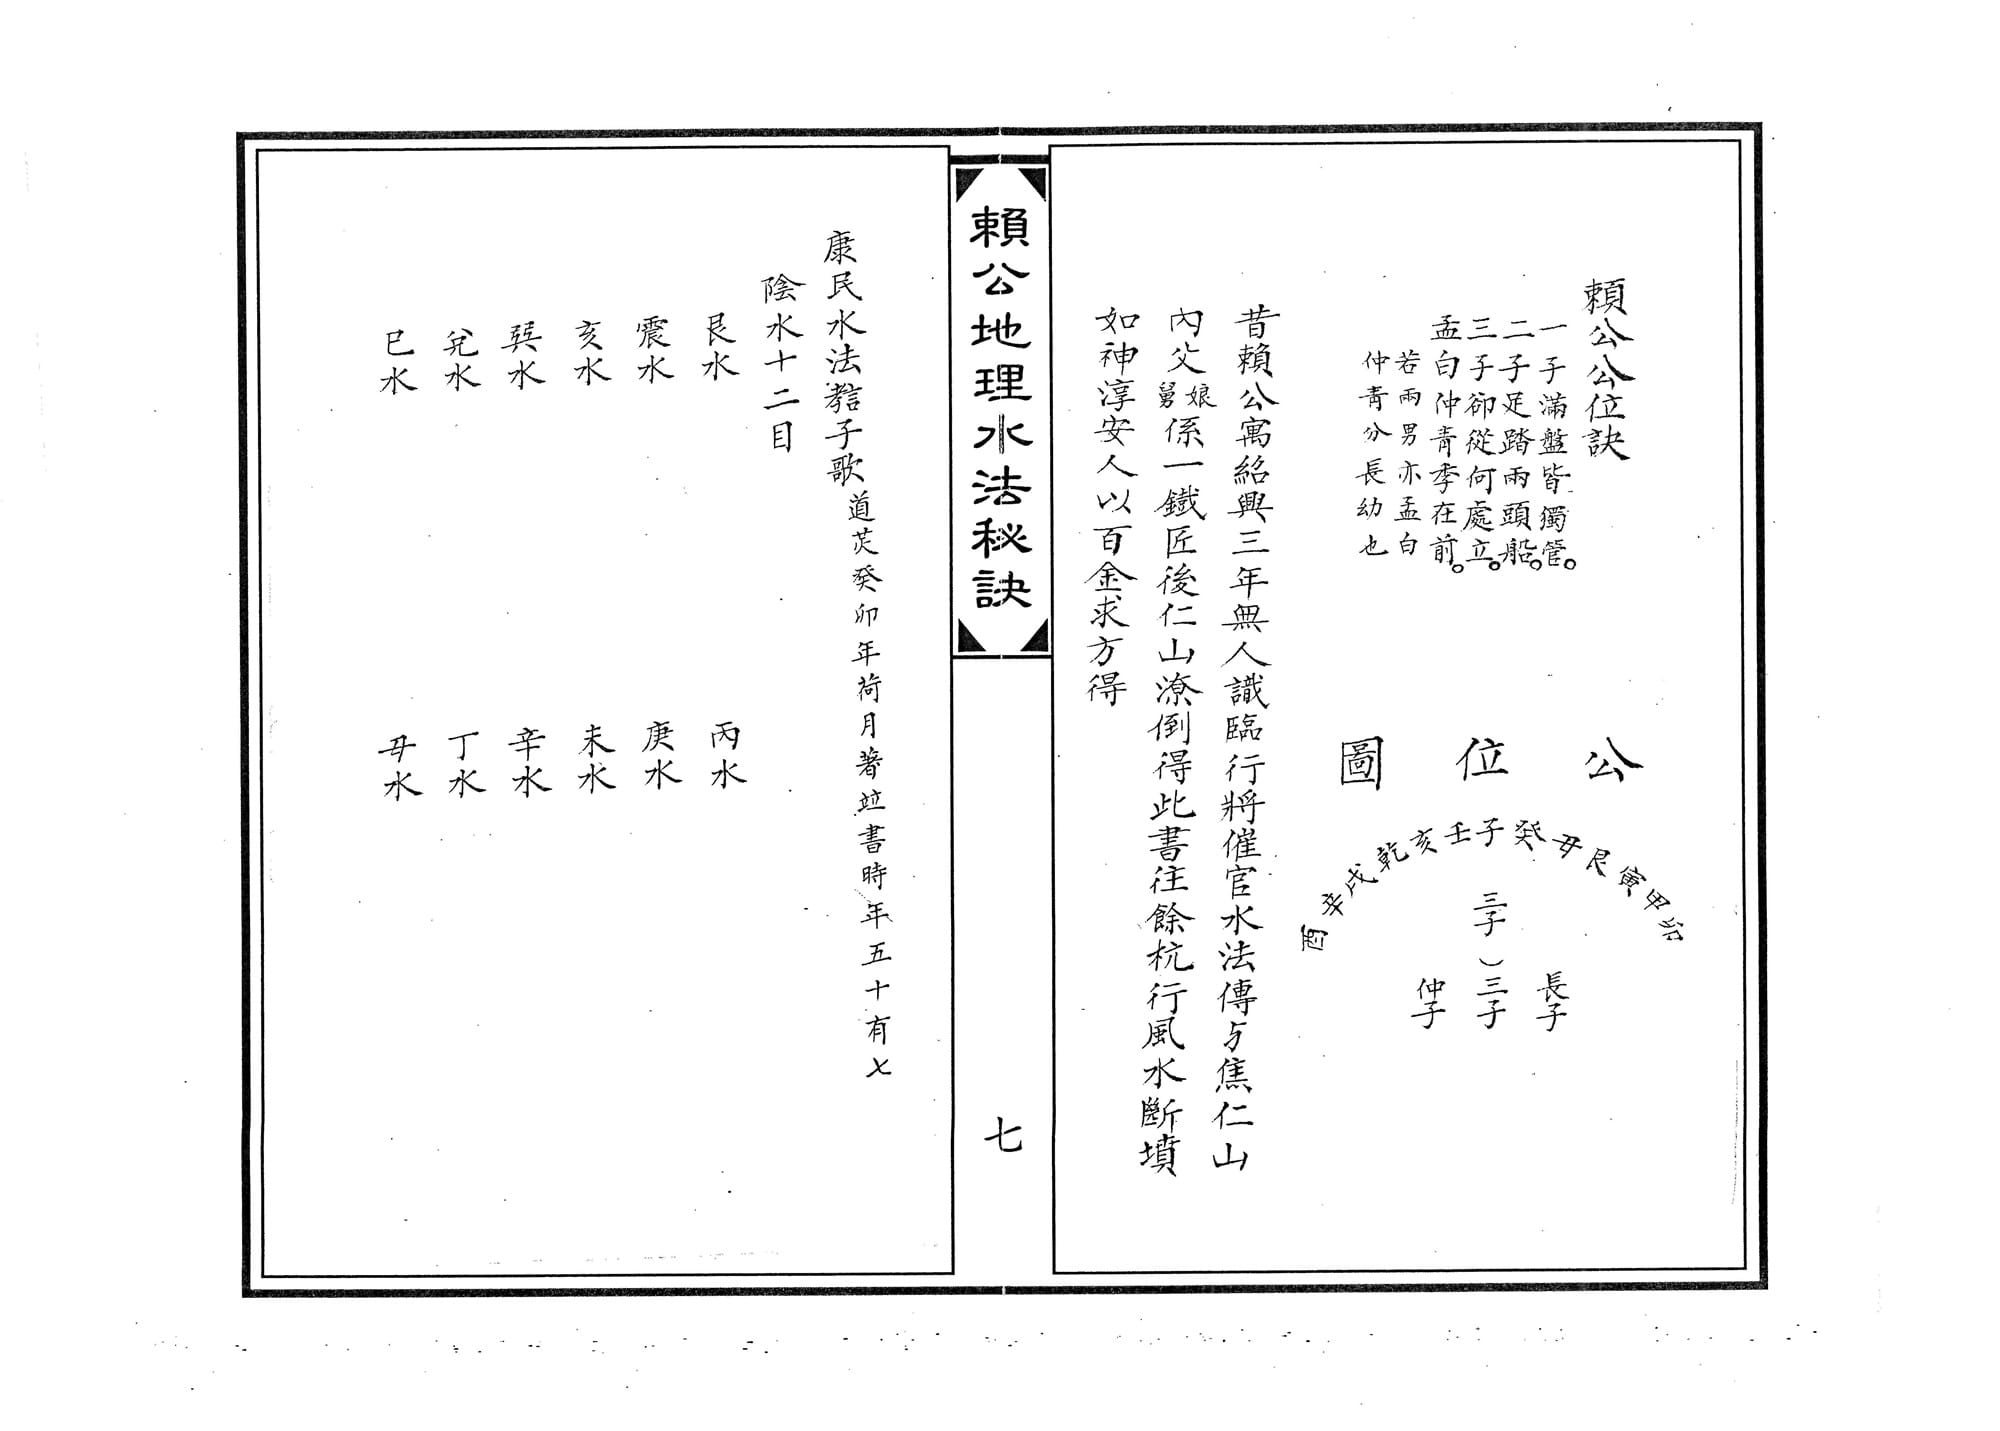 賴公公位訣
一子滿盤皆獨管。
二子足踏兩頭船。
三子卻從何處立。
孟白仲青季在前。
若兩男亦孟白
仲青分長幼也
公位圖
卯甲寅艮丑癸子壬亥乾戌辛酉
三子
長子
三子
仲子
昔賴公寓紹興三年無人識臨行將催官水法傳与焦仁山
內父娘舅係一鐵匠後仁山潦倒得此書往餘杭行風水斷墳
如神淳安人以百金求方得
賴公地理水法秘訣
七
康民水法教子歌道芡癸卯年荷月著竝書時年五十有七
陰水十二目
艮水 丙水
震水 庚水
亥水 未水
巽水 辛水
兌水 丁水
巳水 丑水